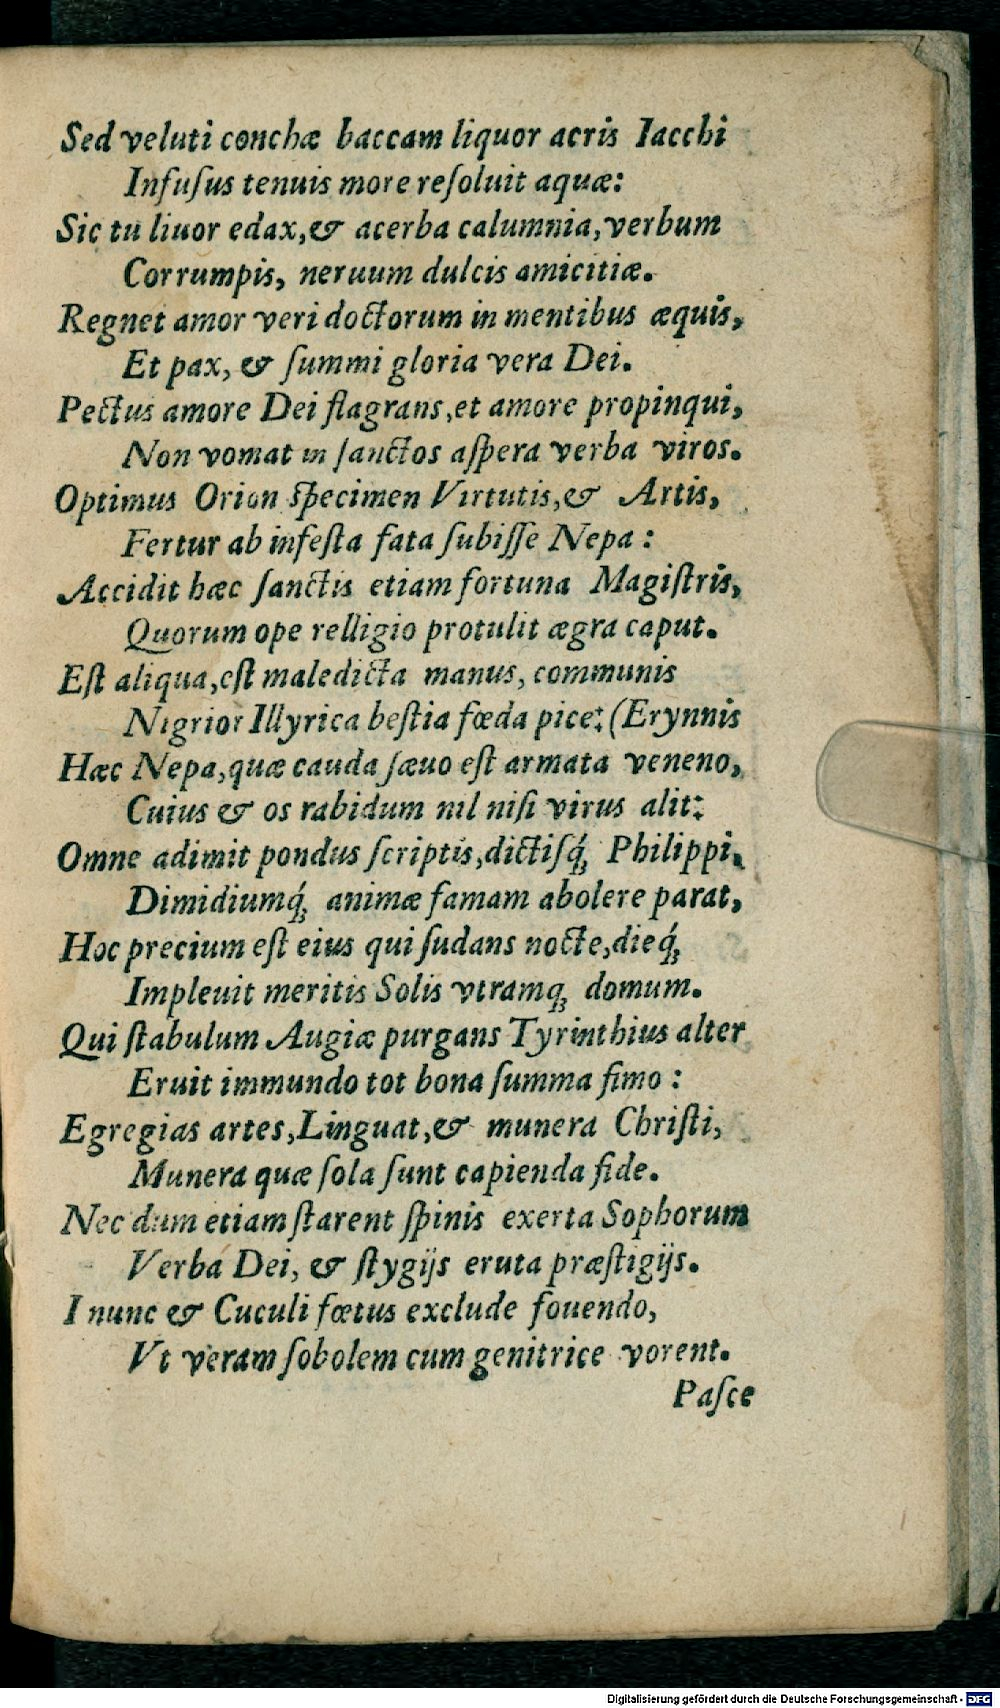 Sed veluti conchæ baccam liquor acris Iacchi
Infuſus tenuis more reſoluit aquæ:
Sic tu liuor edax,& acerba calumnia, verbum
Corrumpis, neruum dulcis amicitiæ.
Regnet amor veri doctorum in mentibus æquis,
Et pax, & ſummi gloria vera Dei.
Pectus amore Dei flagrans,et amore propinqui,
Non vomat in ſanctos aſpera verba viros.
Optimus Orion ſpecimen Virtutis,& Artis,
Fertur ab infeſta fata ſubiſſe Nepa:
Accidit hæc ſanctis etiam fortuna Magiſtris,
Quorum ope relligio protulit ægra caput.
Eſt aliqua,eſt maledicta manus, communis
Nigrior Illyrica beſtia fœda pice: (Erynnis
Hæc Nepa,quæ cauda ſæuo eſt armata veneno,
Cuius & os rabidum nil niſi virus alit:
Omne adimit pondus ſcriptis,dictiſq́; Philippi,
Dimidiumq́; animæ famam abolere parat,
Hoc precium eſt eius qui ſudans nocte,dieq́;
Impleuit meritis Solis vtramq; domum.
Qui ſtabulum Augiæ purgans Tyrinthius alter
Eruit immundo tot bona ſumma fimo:
Egregias artes,Linguat,& munera Chriſti,
Munera quæ ſola ſunt capienda fide.
Nec dum etiam ſtarent ſpinis exerta Sophorum
Verba Dei, & ſtygijs eruta præſtigijs.
I nunc & Cuculi fœtus exclude fouendo,
Vt veram ſobolem cum genitrice vorent.
Paſce
Digitalisierung gefördert durch die Deutsche Forschungsgemeinschaft - DFG